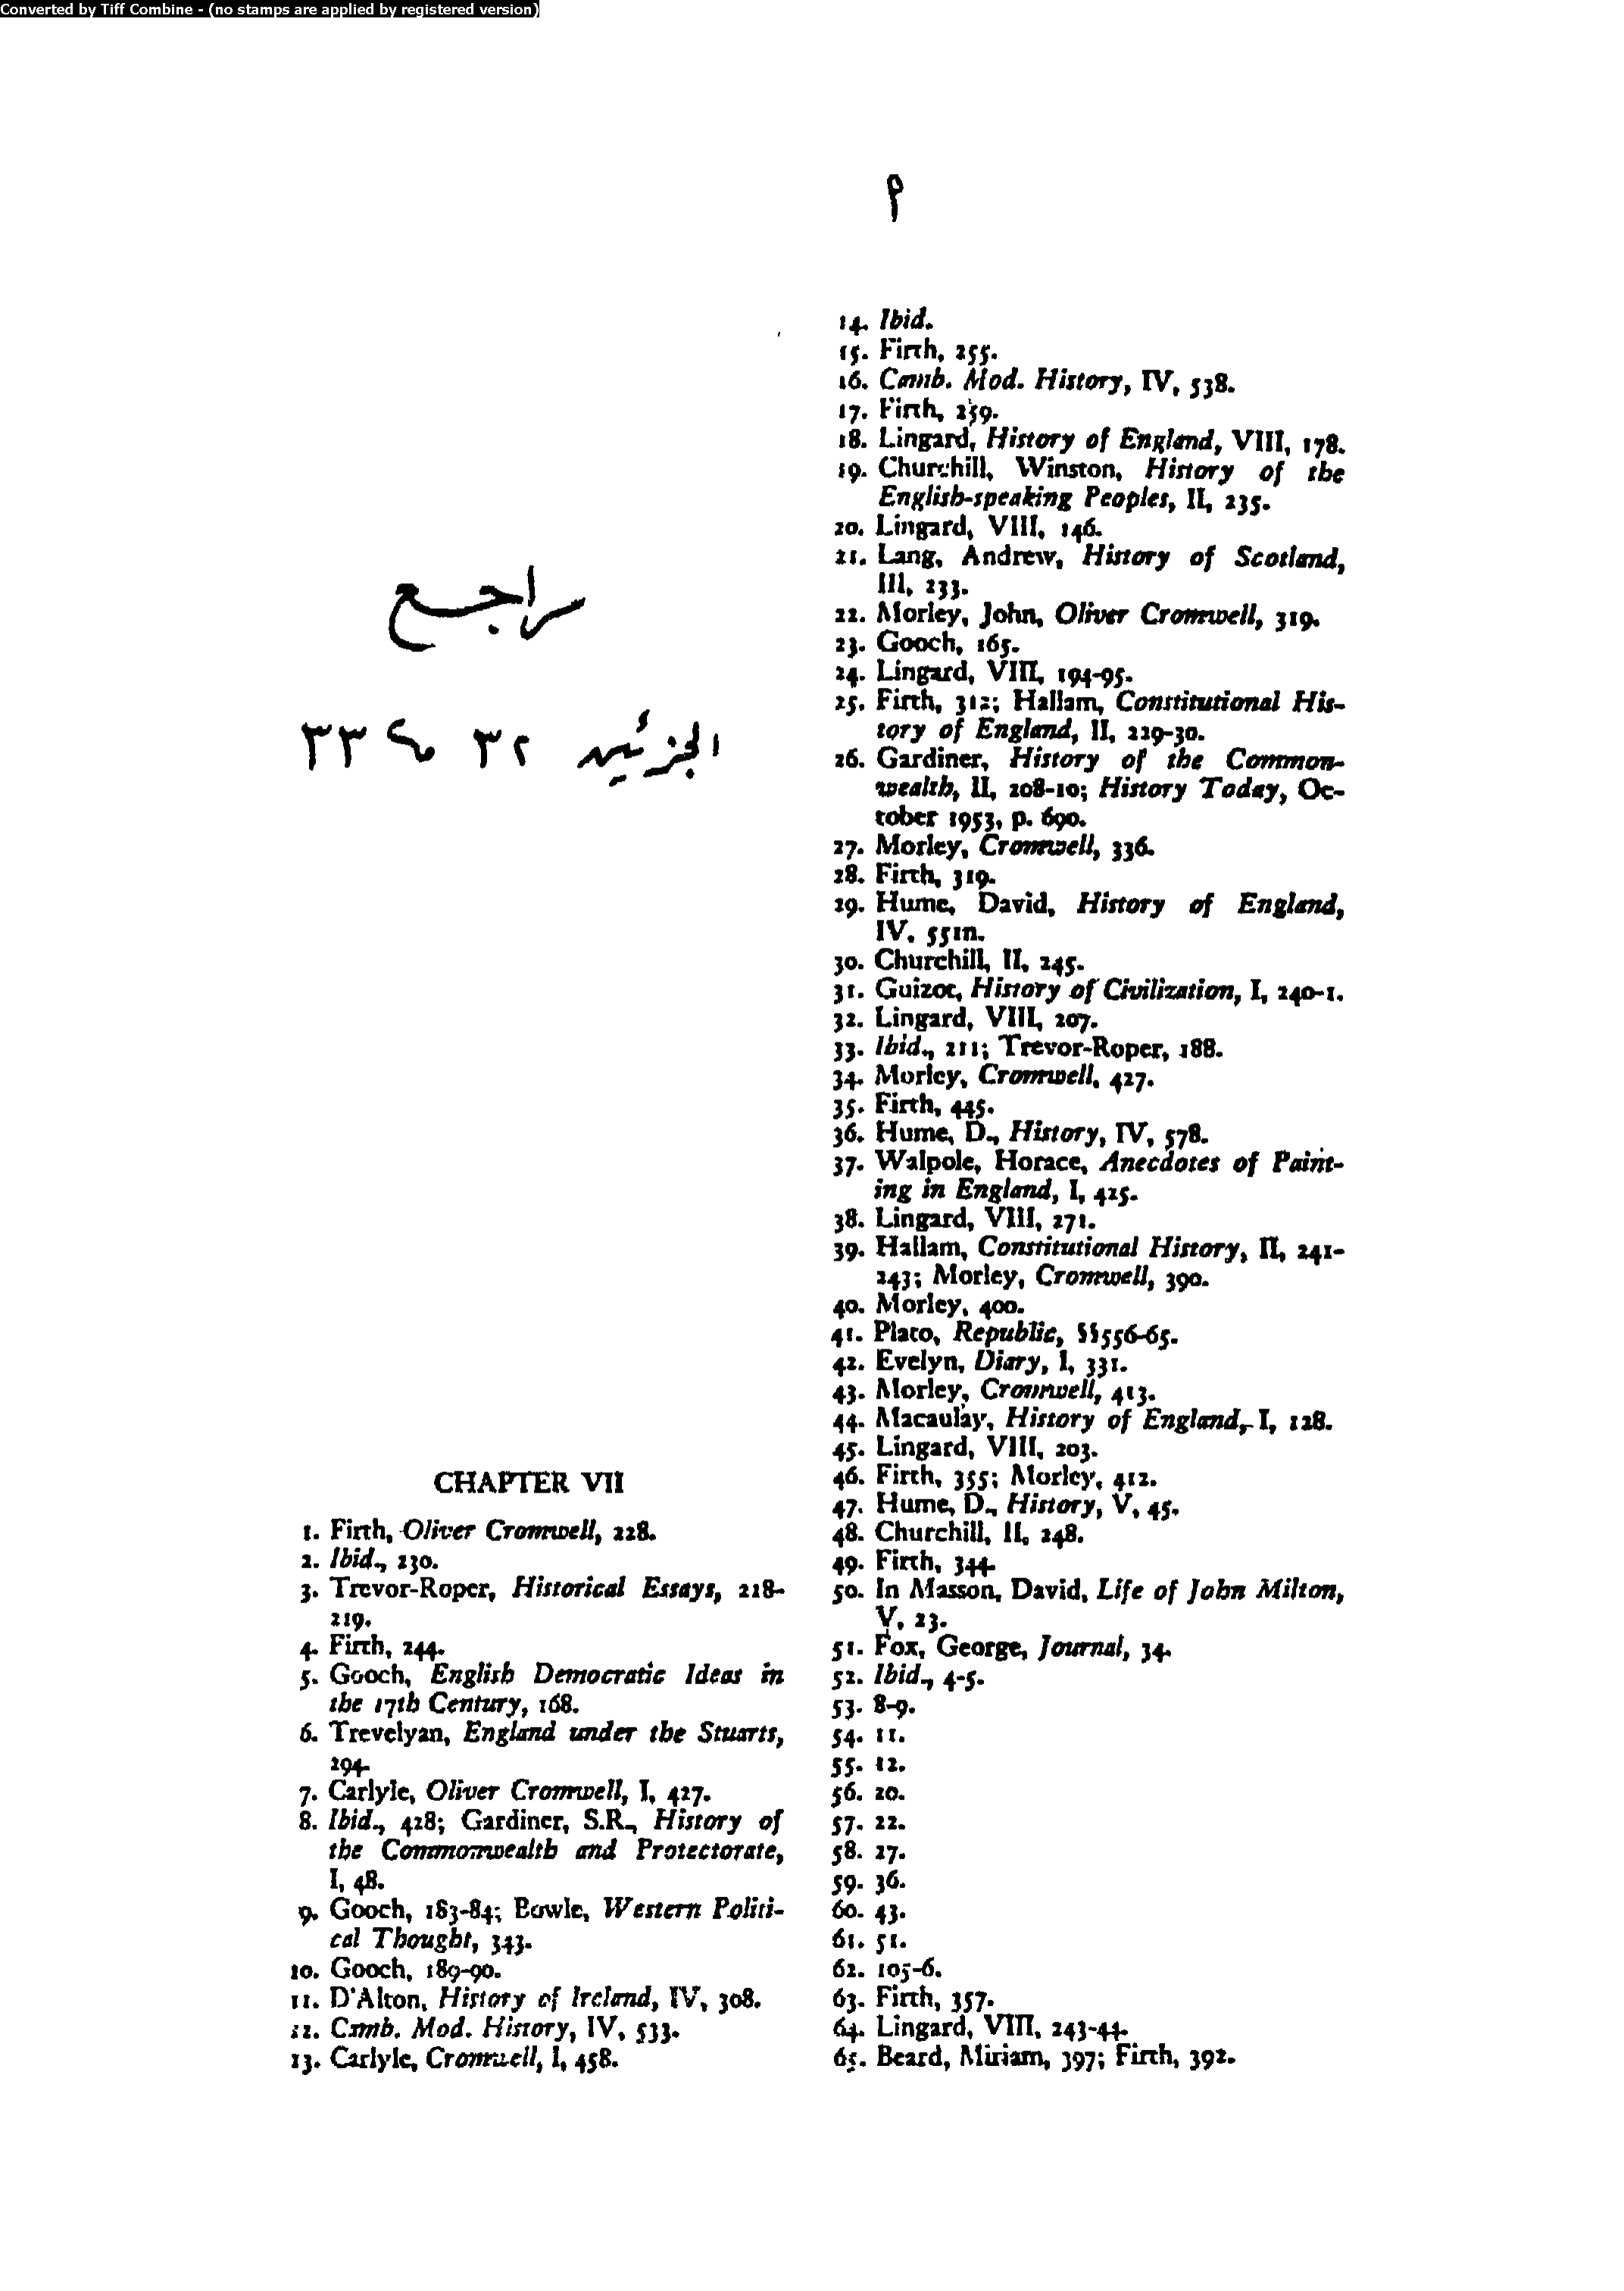 Converted by Tiff Combine - (no stamps are applied by registered version)
٩
مراجع
الجزئين ٣٢ ، ٣٣
CHAPTER VII
1. Firth, Oliver Cromwell, 228.
2. Ibid., 230.
3. Trevor-Roper, Historical Essays, 218-
219.
4. Firth, 244.
5. Gooch, English Democratic Ideas in
the 17th Century, 168.
6. Trevelyan, England under the Stuarts,
294.
7. Carlyle, Oliver Cromwell, I, 427.
8. Ibid., 428; Gardiner, S.R., History of
the Commonwealth and Protectorate,
I, 48.
9. Gooch, 183-84; Bowle, Western Politi-
cal Thought, 343.
10. Gooch, 189-90.
11. D'Alton, History of Ireland, IV, 308.
12. Camb. Mod. History, IV, 533.
13. Carlyle, Cromwell, I, 458.
14. Ibid.
15. Firth, 255.
16. Camb. Mod. History, IV, 538.
17. Firth, 259.
18. Lingard, History of England, VIII, 178.
19. Churchill, Winston, History of the
English-speaking Peoples, II, 235.
20. Lingard, VIII, 146.
21. Lang, Andrew, History of Scotland,
III, 233.
22. Morley, John, Oliver Cromwell, 319.
23. Gooch, 165.
24. Lingard, VIII, 194-95.
25. Firth, 312; Hallam, Constitutional His-
tory of England, II, 229-30.
26. Gardiner, History of the Common-
wealth, II, 208-10; History Today, Oc-
tober 1953, p. 690.
27. Morley, Cromwell, 336.
28. Firth, 319.
29. Hume, David, History of England,
IV, 551n.
30. Churchill, II, 245.
31. Guizot, History of Civilization, I, 240-1.
32. Lingard, VIII, 207.
33. Ibid., 211; Trevor-Roper, 188.
34. Morley, Cromwell, 427.
35. Firth, 445.
36. Hume, D., History, IV, 578.
37. Walpole, Horace, Anecdotes of Paint-
ing in England, I, 425.
38. Lingard, VIII, 271.
39. Hallam, Constitutional History, II, 241-
243; Morley, Cromwell, 390.
40. Morley, 400.
41. Plato, Republic, §§556-65.
42. Evelyn, Diary, I, 331.
43. Morley, Cromwell, 413.
44. Macaulay, History of England, I, 128.
45. Lingard, VIII, 203.
46. Firth, 355; Morley, 412.
47. Hume, D., History, V, 45.
48. Churchill, II, 248.
49. Firth, 344.
50. In Masson, David, Life of John Milton,
V, 23.
51. Fox, George, Journal, 34.
52. Ibid., 4-5.
53. 8-9.
54. 11.
55. 12.
56. 20.
57. 22.
58. 27.
59. 36.
60. 43.
61. 51.
62. 105-6.
63. Firth, 357.
64. Lingard, VIII, 243-44.
65. Beard, Miriam, 397; Firth, 392.